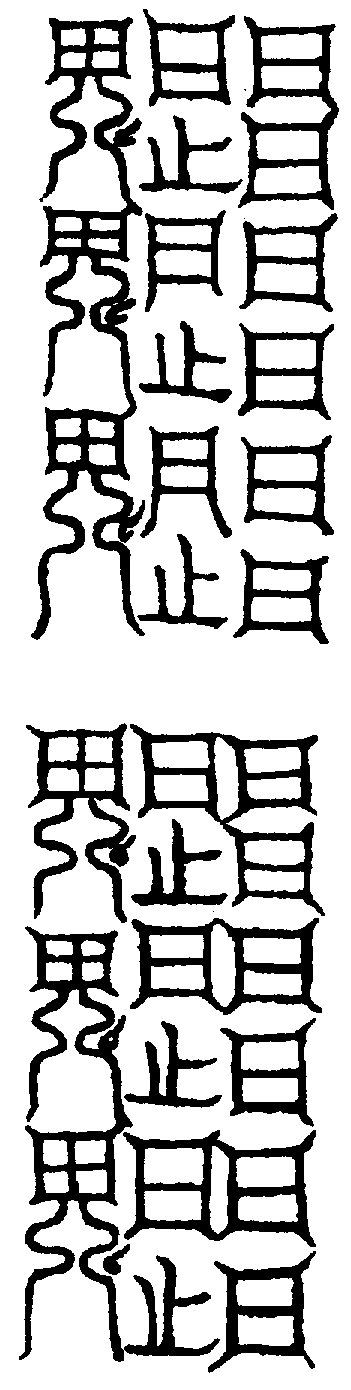 日日日日日日
日止日止日止
鬼鬼鬼
日日日日日日
日止日止日止
鬼鬼鬼